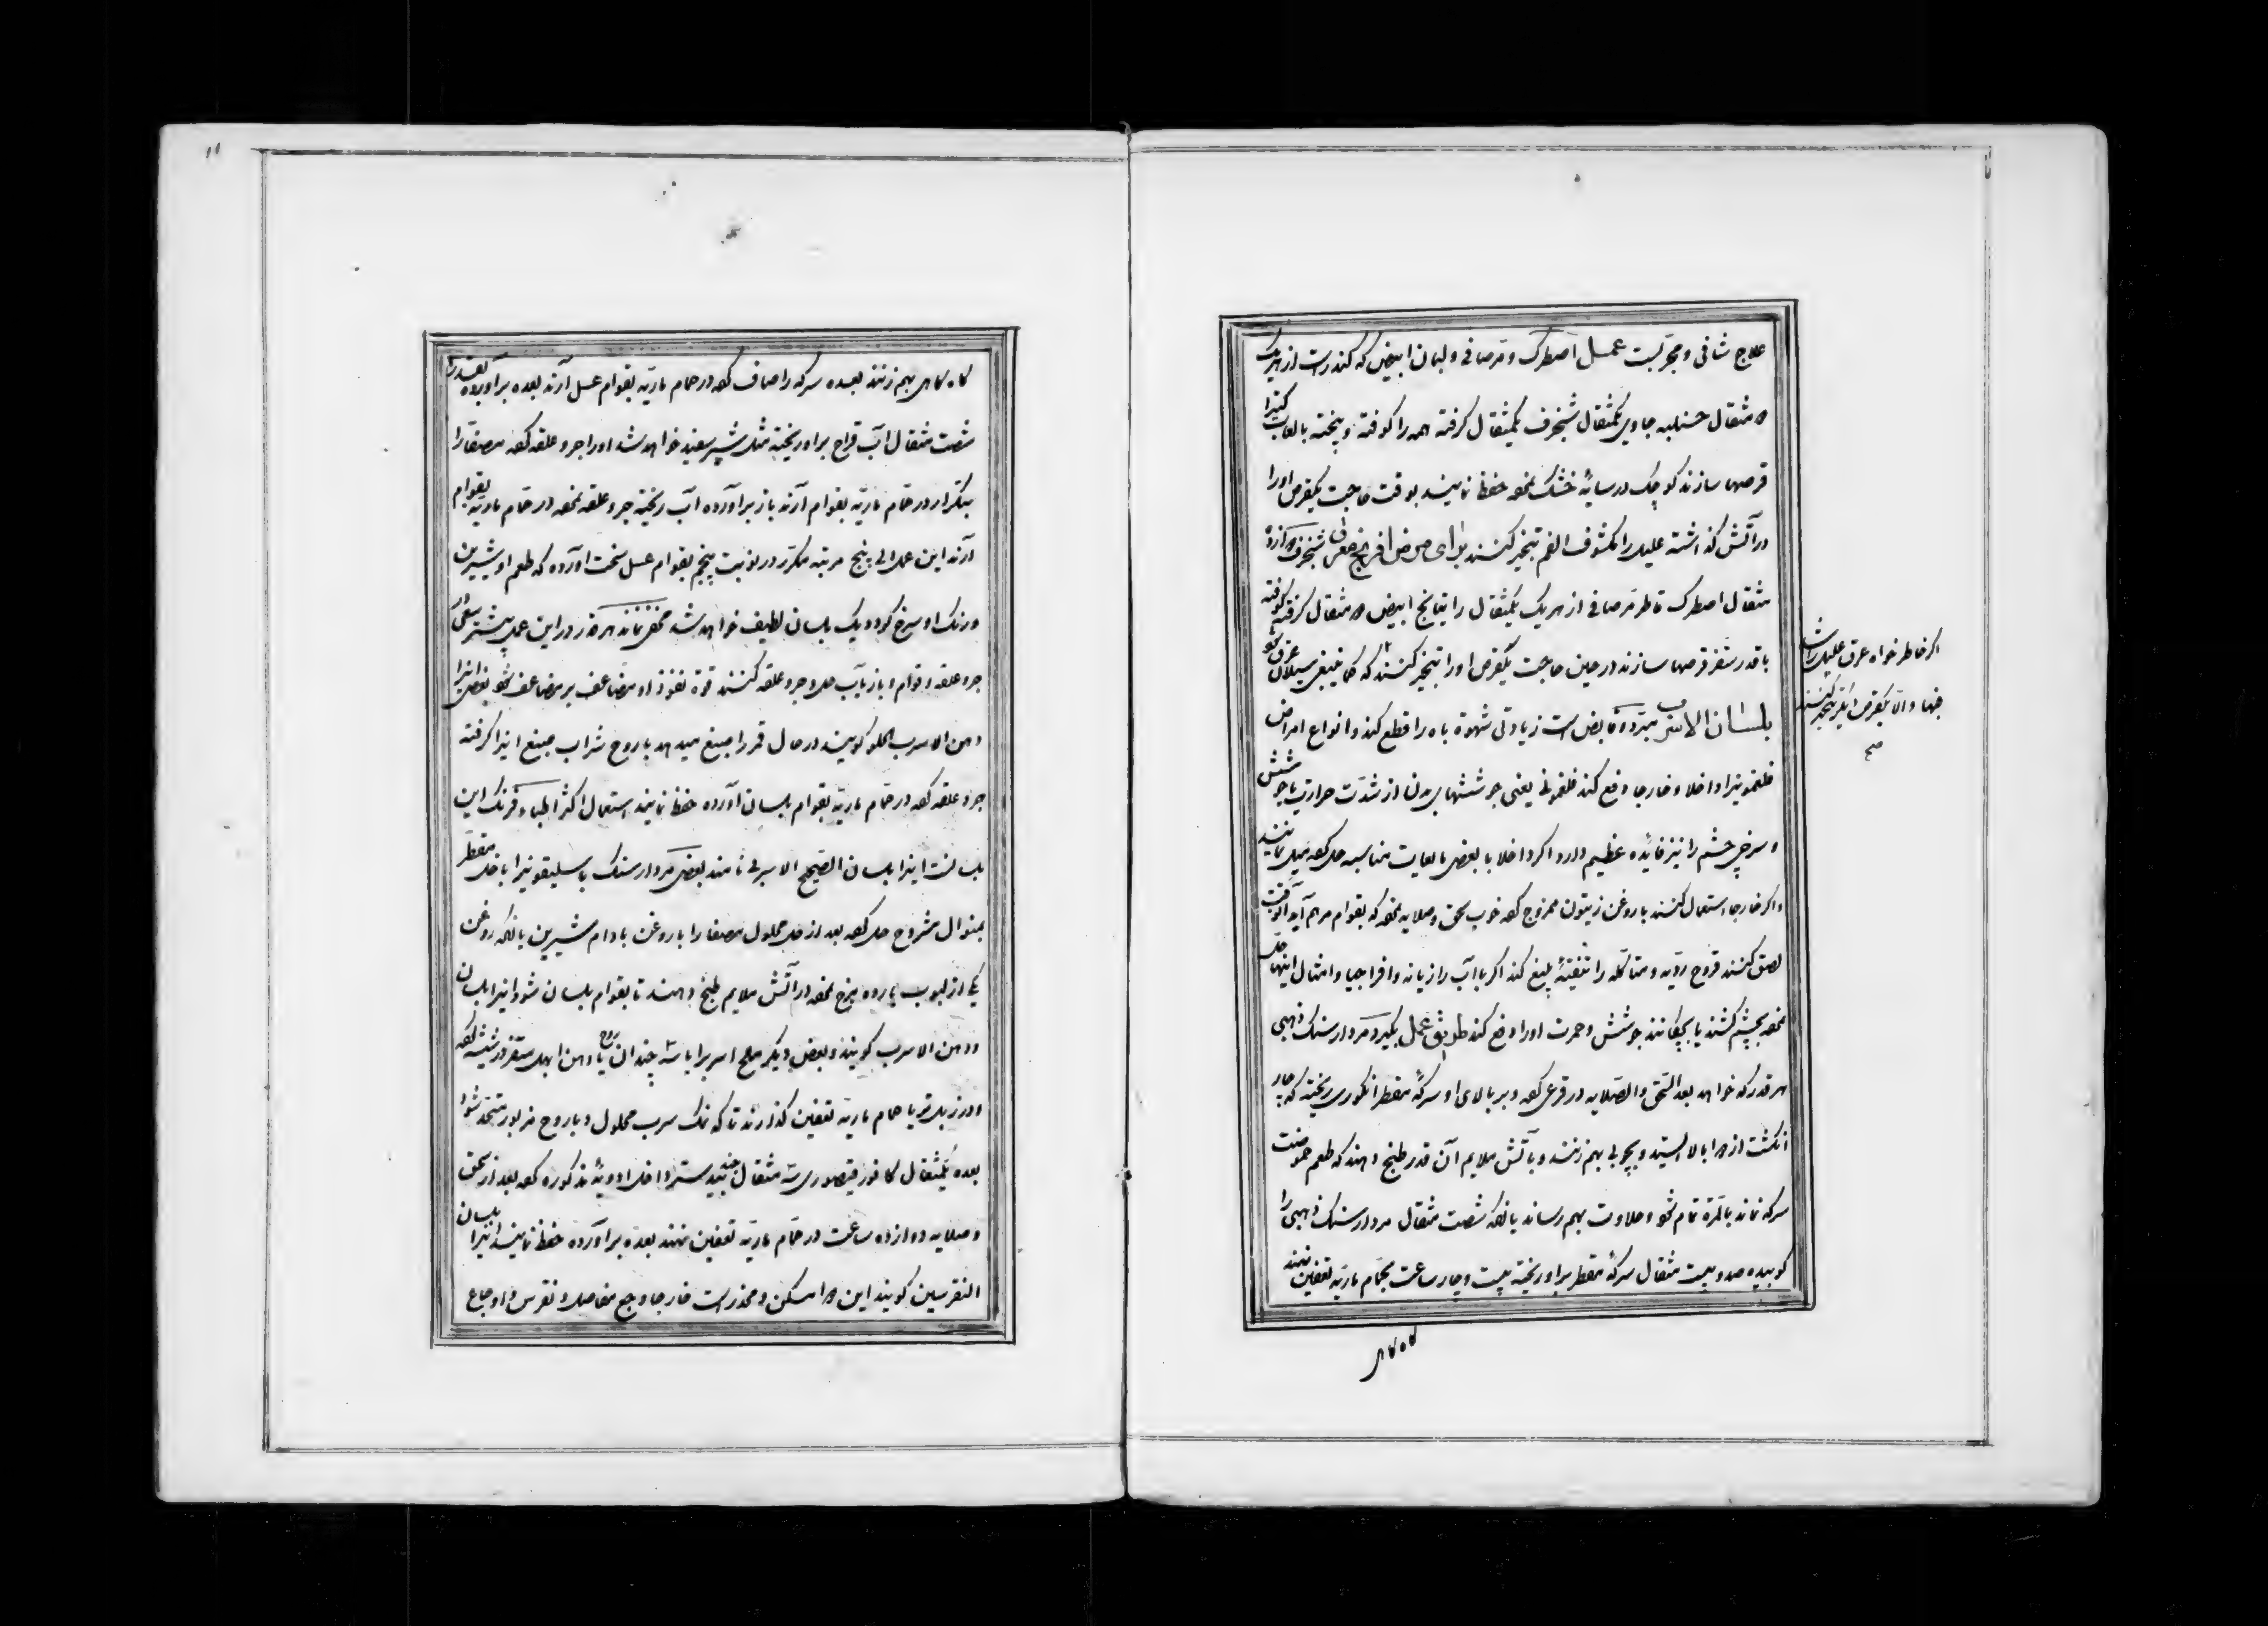 علاج شافی و مجربست عمل اصطرک و مرصافی و لبان ابیض که کندرست از هریک
مثقال حسنلبه جاوی یکمثقال شنجرف یکمثقال کرفته همه را کوفته و پیخته بالعاب کتیرا
قرصها سازند کوچک در سایه خشک نموده حفظ نمایند بوقت حاجت یکقرص اورا
در آتش کذاشته علیل را مکشوف الفم تبخیر کنند برای مرض افرنج معرق شنجرف
مثقال اصطرک قاطر مرصافی از هریک یکمثقال راتیانج ابیض مثقال کرفته کوفته
باقدر شفر قرصها سازند در حین حاجت یکقرص اورا تبخیر کنند که کما ینبغی سیلان عرق شود
اکر خاطر خواه عرق علیل را شد
فبها والا یکقرص دیکر تبخیر کنند
صح
بلسان الاسرب مبرد و قابض است زیادتی شهوة باه را قطع کند و انواع امراض
فلغمونیرا داخلا و خارجا دفع کند فلغمونی یعنی جوششهای بدن از شدت حرارت با جوشش
و سرخی چشم را نیز فائده عظیم دارد اکر داخلا با بعض مایعات مناسبه حل کرده میل نمایند
و اکر خارجا استعمال کنند با روغن زیتون ممزوج کرده خوب سحق و صلایه نموده که بقوام مرهم آید آنوقت
لصق کنند قروح ردیه و متاکله را تنقیهٔ بلیغ کند اکر با آب رازیانه و افراجیا و امثال اینها حل
نموده بچشم کشند یا بچکانند جوشش و حمرت اورا دفع کند طریق عمل بکیرد مردارسنک ذهبی
هر قدر که خواهد بعد السحق والصلایه در قرعی کرده و بر بالای او سرکهٔ مقطر انکوری ریخته که چار
انکشت از بالا ایستد و بچوبی بهم زنند و بآتش ملایم آن قدر طبخ دهند که طعم حموضت
سرکه نماند بالمرة تمام شود حلاوت بهم رساند یا آنکه شصت مثقال مردارسنک ذهبی را
کوبیده صد و بیست مثقال سرکهٔ مقطر بر او ریخته بیست و چار ساعت بحمام ماریه تعفین نهند
کاه کاهی
کاه کاهی بهم زنند بعده سرکه را صاف کرده در حمام ماریه بقوام عسل آرند بعده بر آورده بقدر
شصت مثقال آب قراح بر او ریخته مثل شیر سفید خواهد شد اورا جر و علقه کرده مصفارا
بتکرار در حمام ماریه بقوام آرند باز بر آورده آب ریخته جر و علقه نموده در حمام ماریه بقوام
آرند این عمل الی پنج مرتبه مکرر در نوبت پنجم بقوام عسل سخت آورده که طعم او شیرین
و رنک او سرخ کردد یک بلسان لطیف خواهد شد مخفی نماند هر قدر در این عمل پیشتر سعی در
جر و علقه و قوام و باز بآب حل و جر و علقه کنند قوة نفوذ او مضاعف بر مضاعف شود بعض اینرا
دهن الاسرب الحلو کویند در حال قمر را صبغ میدهد با روح شراب صبغ اینرا کرفته
جر و علقه کرده در حمام ماریه بقوام بلسان آورده حفظ نمایند استعمال اکثر اطباء فرنک این
بلسانست اینرا بلسان الصحیح الاسربی نامند بعض مردارسنک باسلیقونیرا با خل مقطر
بمنوال مشروح حل کرده بعد از حل محلول مصفا را با روغن بادام شیرین یا آنکه روغن
یکی از لبوب بارده مزج نموده در آتش ملایم طبخ دهند تا بقوام بلسان شود اینرا بلسان
و دهن الاسرب کویند و بعض دیکر ملح اسربرا با سه چندان روح یا دهن ابهل ستقر در شیشه کرده
و در زبل تر یا حمام ماریه تعفین کذارند تا که نمک سرب محلول و با روح مزبور متحد شود
بعده یکمثقال کافور قیصوری سه مثقال جند بیدستر داخل ادویهٔ مذکوره کرده بعد از سحق
و صلایه دوازده ساعت در حمام ماریه تعفین نهند بعده بر آورده حفظ نمایند اینرا بلسان
النقرسین کویند این مسکن و مخدرست خارجا وجع مفاصل و نقرس و اوجاع